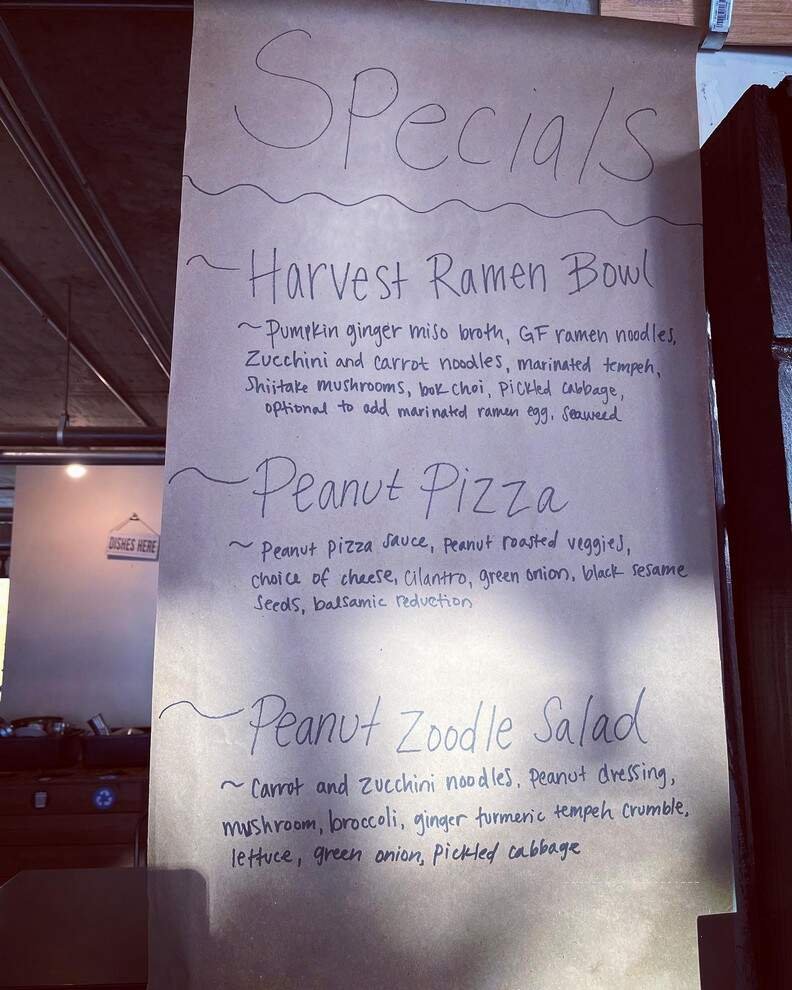 Specials
~ Harvest Ramen Bowl
~ Pumpkin ginger miso broth, GF ramen noodles,
Zucchini and carrot noodles, marinated tempeh,
Shiitake mushrooms, bok choi, pickled cabbage,
optional to add marinated ramen egg, seaweed
~ Peanut Pizza
~ Peanut pizza sauce, peanut roasted veggies,
choice of cheese, cilantro, green onion, black sesame
seeds, balsamic reduction
DISHES HERE
~ Peanut Zoodle Salad
~ Carrot and zucchini noodles, peanut dressing,
mushroom, broccoli, ginger turmeric tempeh crumble,
lettuce, green onion, pickled cabbage